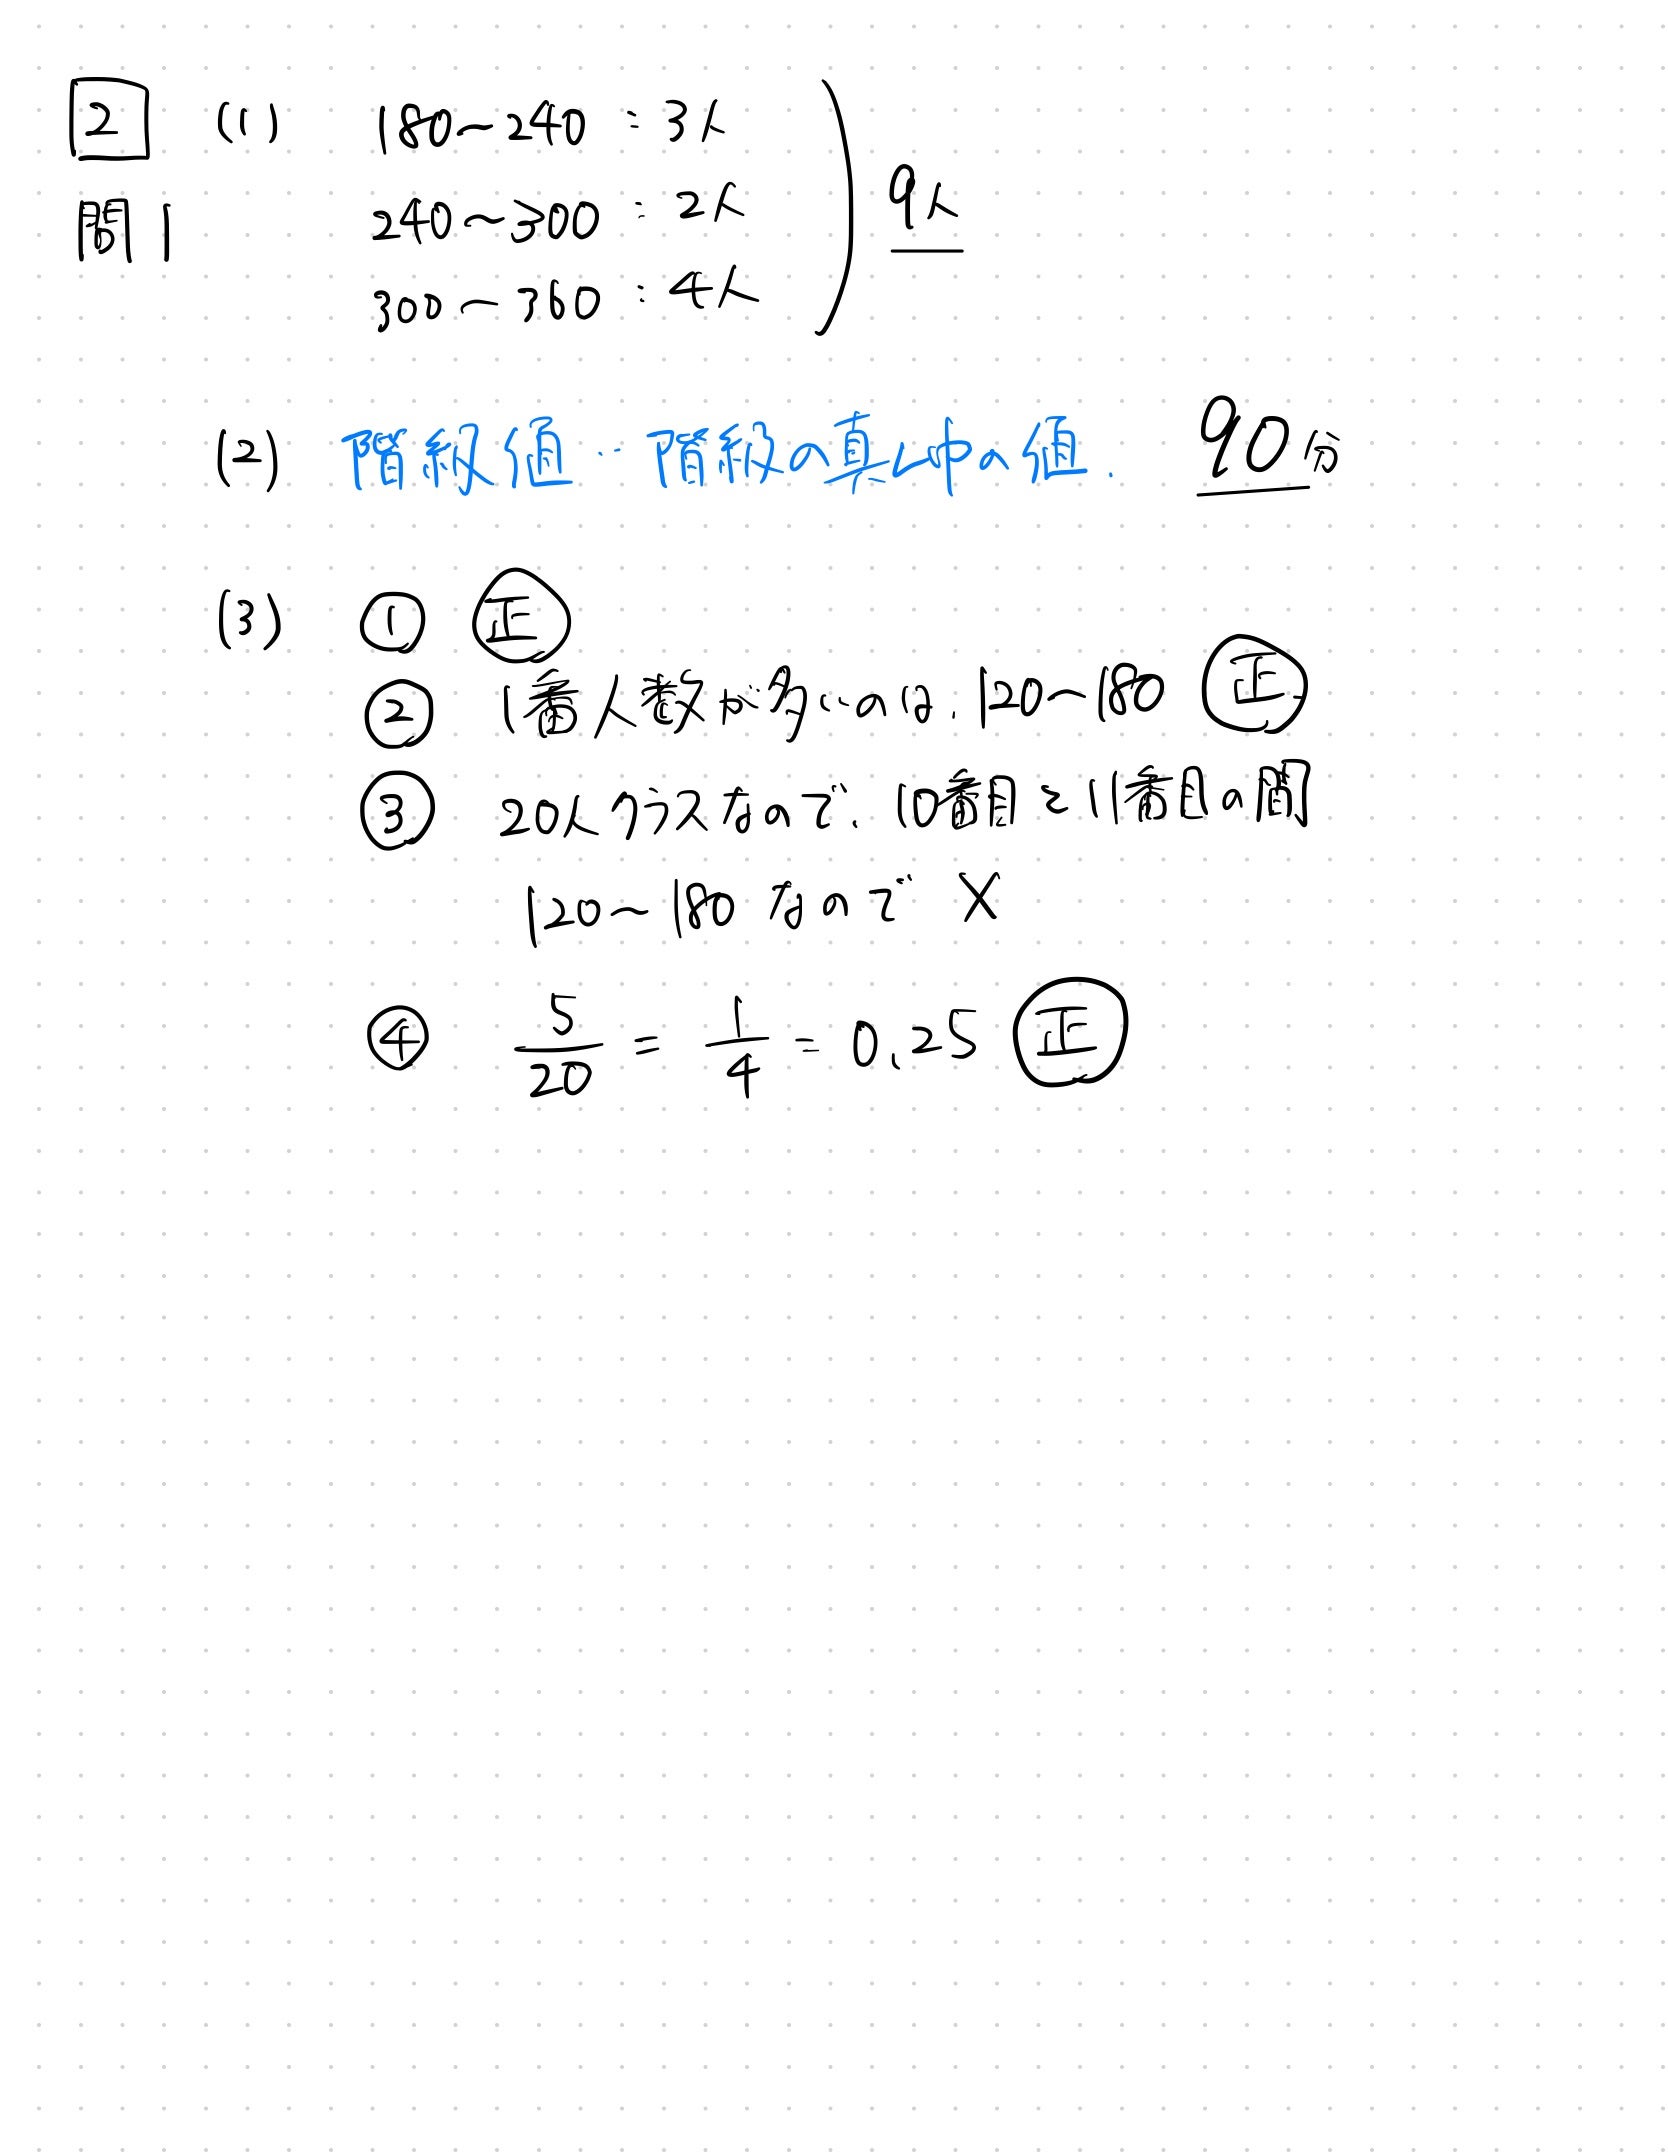 2 (1) 180～240 : 3人
問1 240～300 : 2人 9人
300～360 : 4人
(2) 階級値…階級の真ん中の値. 90分
(3) ① 正
② 1番人数が多いのは、120～180 正
③ 20人クラスなので、10番目と11番目の間
120～180 なので ×
④ 5/20 = 1/4 = 0.25 正